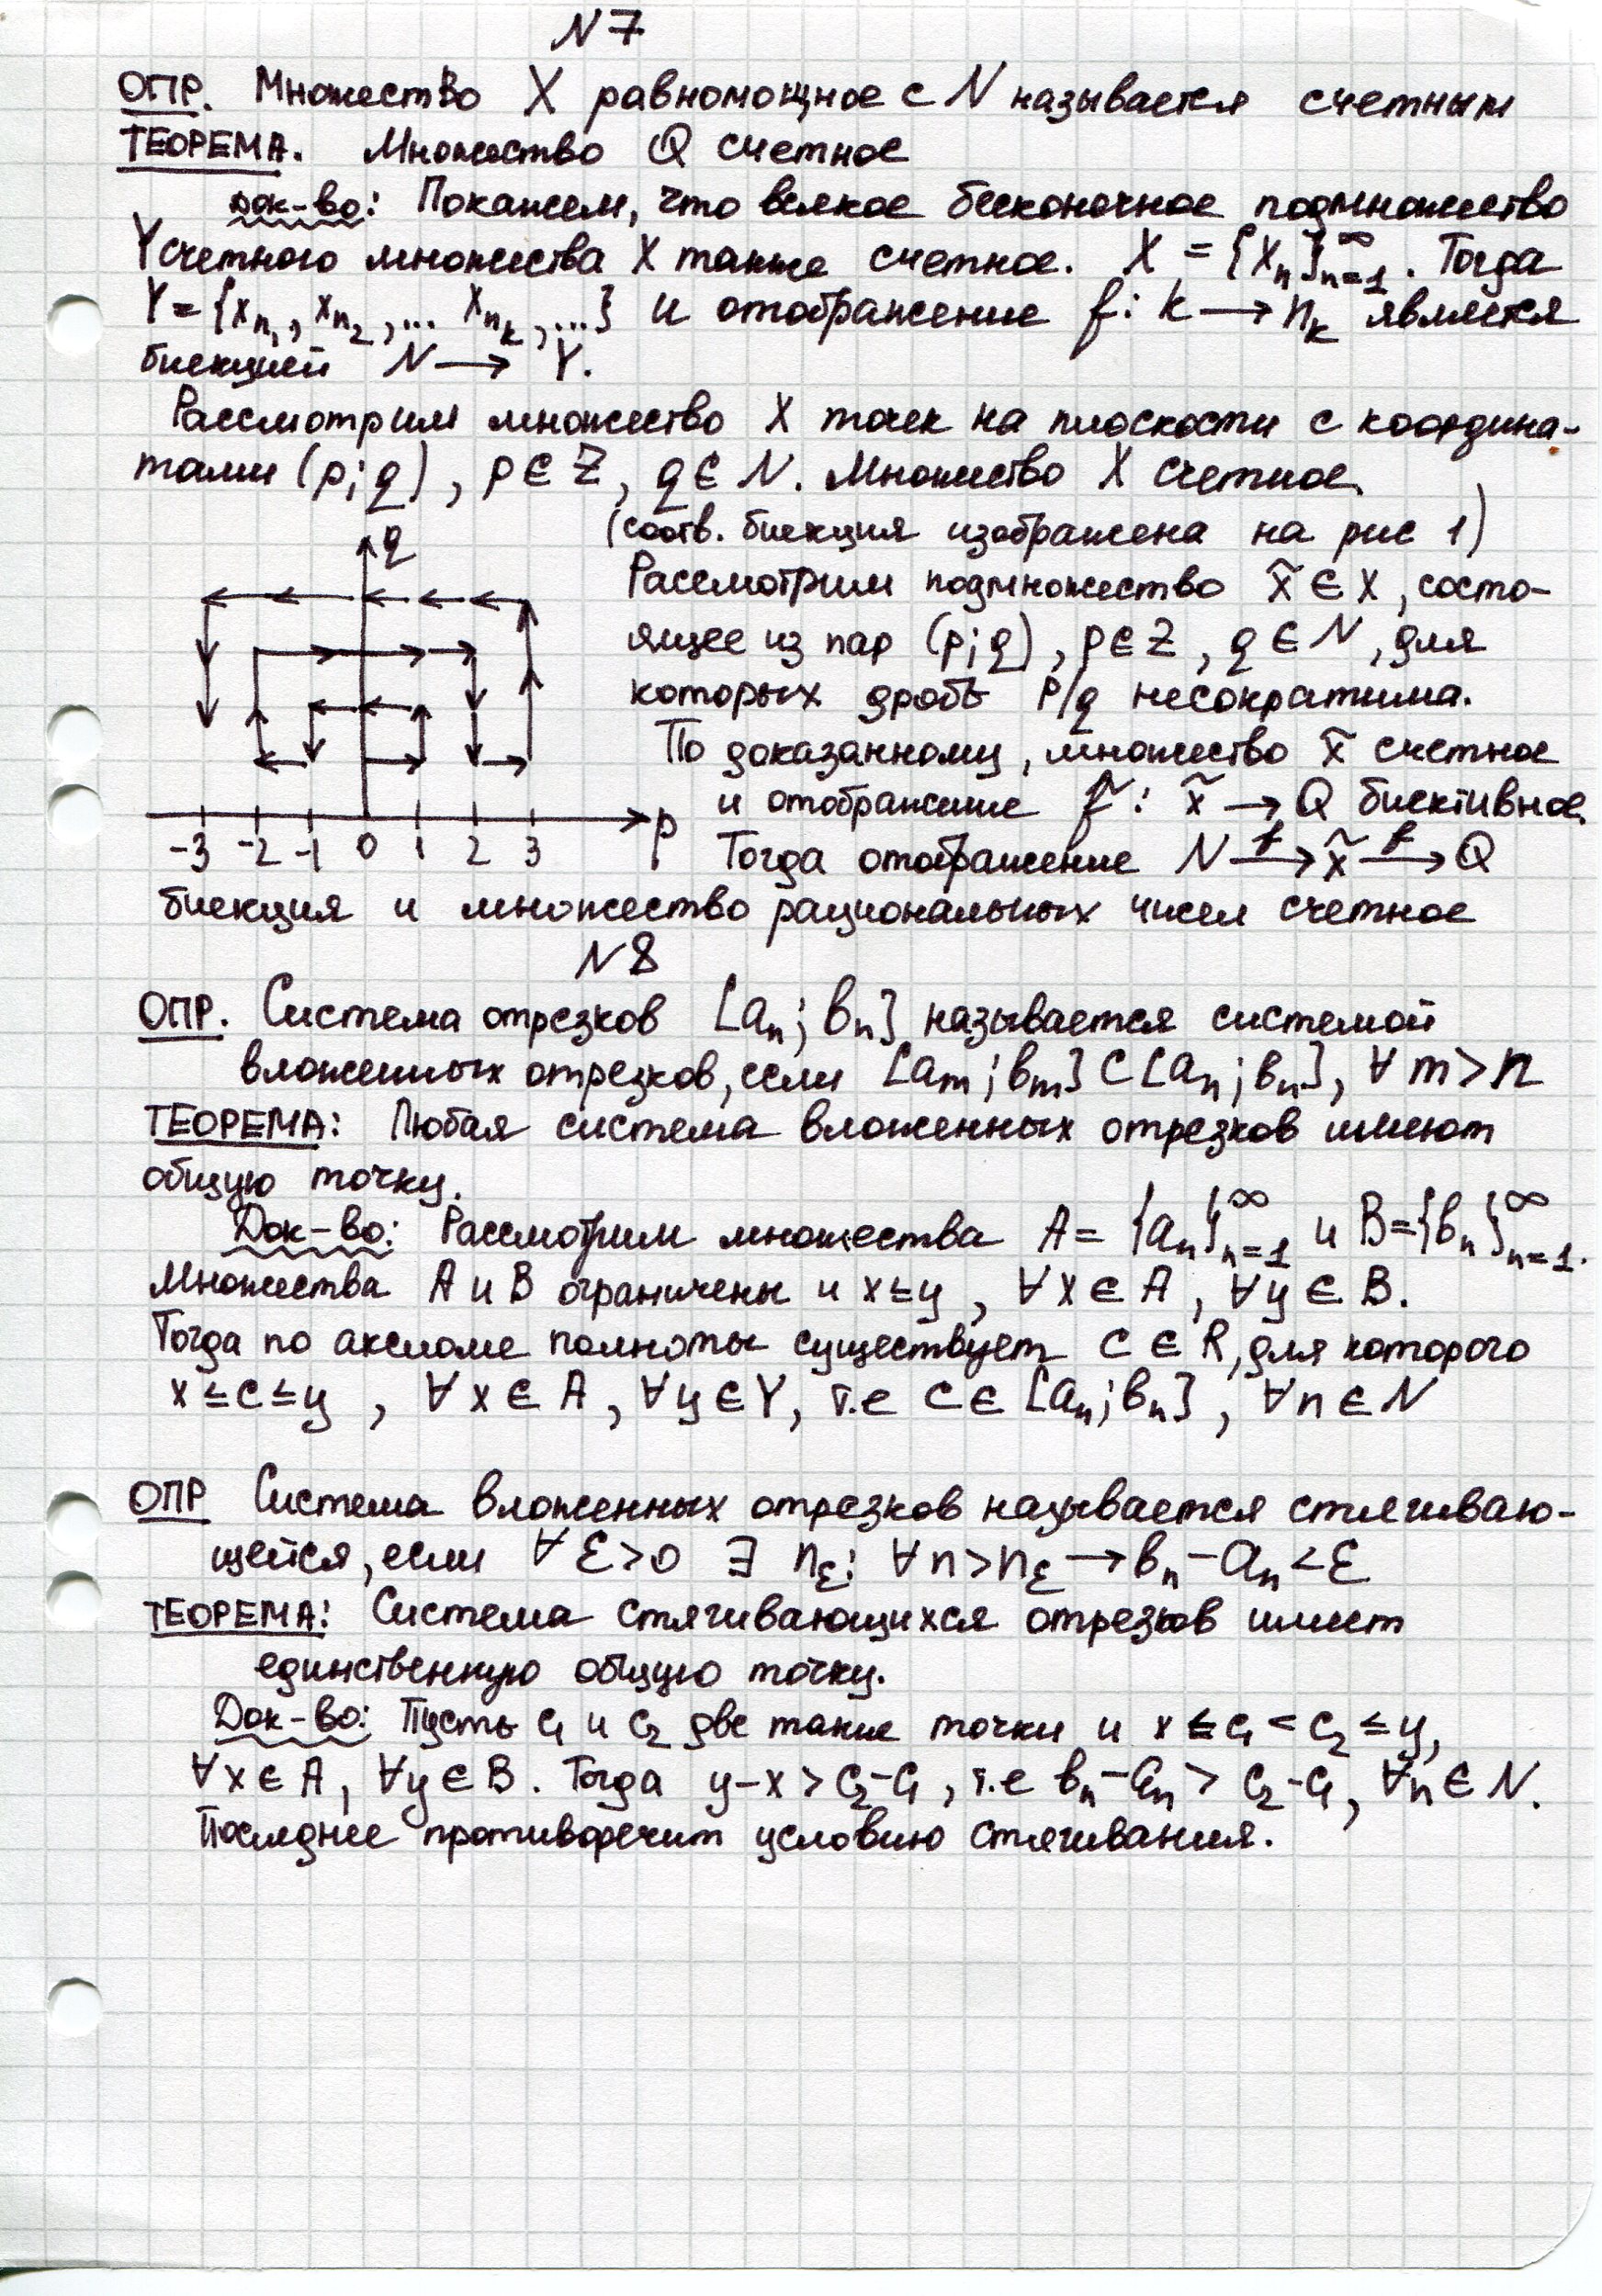 N7
ОПР. Множество X равномощное с N называется счетным
ТЕОРЕМА. Множество Q счетное
док-во: Покажем, что всякое бесконечное подмножество
Y счетного множества X также счетное. X = {x_n}_{n=1}^∞. Тогда
Y = {x_{n_1}, x_{n_2}, ... x_{n_k}, ...} и отображение f: k → n_k является
биекцией N → Y.
Рассмотрим множество X точек на плоскости с координа-
тами (p;q), p∈Z, q∈N. Множество X счетное.
(соотв. биекция изображена на рис 1)
q
Рассмотрим подмножество x̃ ∈ X, состо-
ящее из пар (p;q), p∈Z, q∈N, для
которых дробь P/q несократима.
По доказанному, множество x̃ счетное
и отображение f̃: x̃ → Q биективное.
-3 -2 -1 0 1 2 3 p
Тогда отображение N →^f x̃ →^f Q
биекция и множество рациональных чисел счетное
N8
ОПР. Система отрезков [a_n; b_n] называется системой
вложенных отрезков, если [a_m; b_m] ⊂ [a_n; b_n], ∀ m > n
ТЕОРЕМА: Любая система вложенных отрезков имеют
общую точку.
Док-во: Рассмотрим множества A = {a_n}_{n=1}^∞ и B = {b_n}_{n=1}^∞.
Множества A и B ограничены и x ≤ y, ∀x ∈ A, ∀y ∈ B.
Тогда по аксиоме полноты существует C ∈ R, для которого
x ≤ c ≤ y, ∀x ∈ A, ∀y ∈ Y, т.е C ∈ [a_n; b_n], ∀n ∈ N
ОПР Система вложенных отрезков называется стягиваю-
щейся, если ∀ ε > 0 ∃ n_ε: ∀n > n_ε → b_n - a_n < ε
ТЕОРЕМА: Система стягивающихся отрезков имеет
единственную общую точку.
Док-во: Пусть c_1 и c_2 две такие точки и x ≤ c_1 < c_2 ≤ y,
∀x ∈ A, ∀y ∈ B. Тогда y - x > c_2 - c_1, т.е b_n - a_n > c_2 - c_1, ∀n ∈ N.
Последнее противоречит условию стягивания.